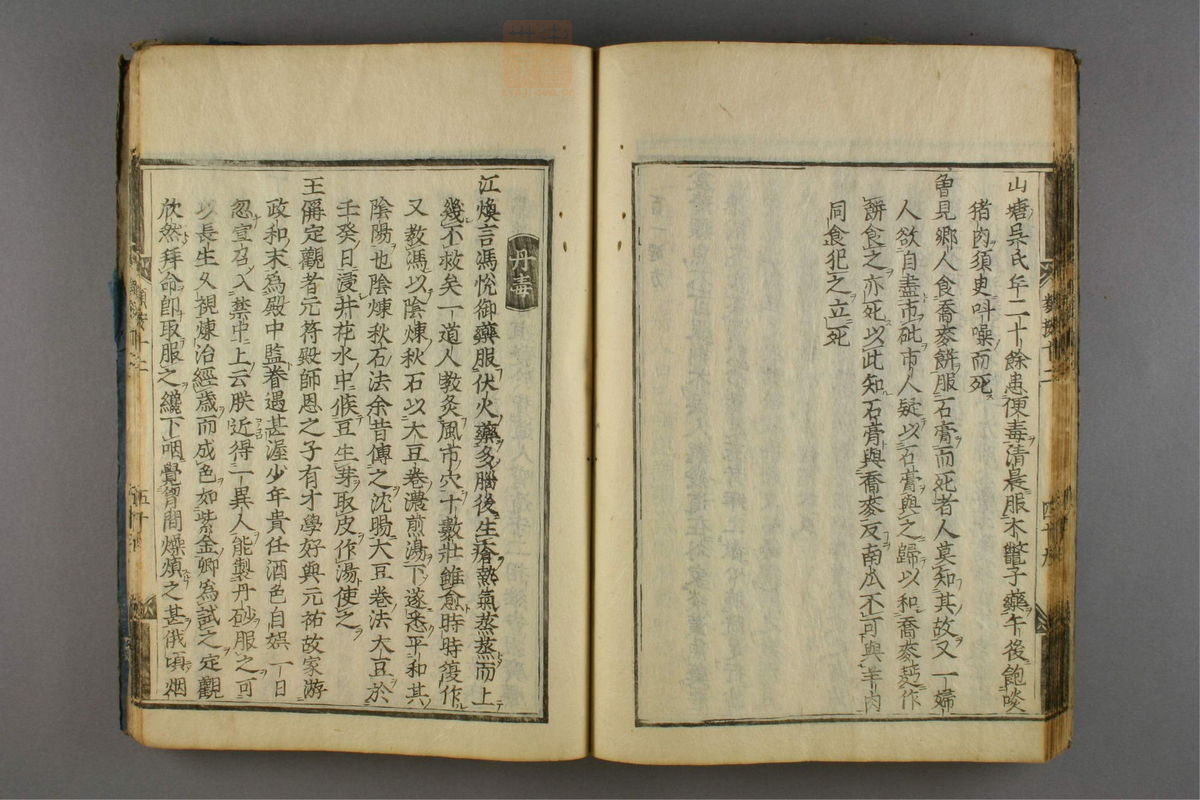 山塘吳氏年二十餘患便毒清晨服木鼈子藥午後飽啖
猪肉須臾呌噪而死
魯見鄉人食喬麥餅服石膏而死者人莫知其故又一婦
人欲自盡市砒市人疑以石膏與之歸以和喬麥麪作
餅食之亦死以此知石膏與喬麥反南瓜不可與羊肉
同食犯之立死
類案十二
四十九
丹毒
江煥言馮悅御藥服伏火藥多腦後生瘡熱氣蒸蒸而上
幾不救矣一道人教灸風市穴十數壯雖愈時時復作
又教馮以陰煉秋石以大豆卷濃煎湯下遂悉平和其
陰陽也陰煉秋石法余昔傳之沈晹大豆卷法大豆於
壬癸日浸井花水中候豆生芽取皮作湯使之
王偁定觀者元符殿師恩之子有才學好與元祐故家游
政和末為殿中監眷遇甚渥少年貴任酒色自娛一日
忽宣召入禁中上云朕近得一異人能製丹砂服之可
以長生久視煉治經歲而成色如紫金卿為試之定觀
欣然拜命卽取服之纔下咽覺胷間燥煩之甚俄頃烟
類案十二
五十